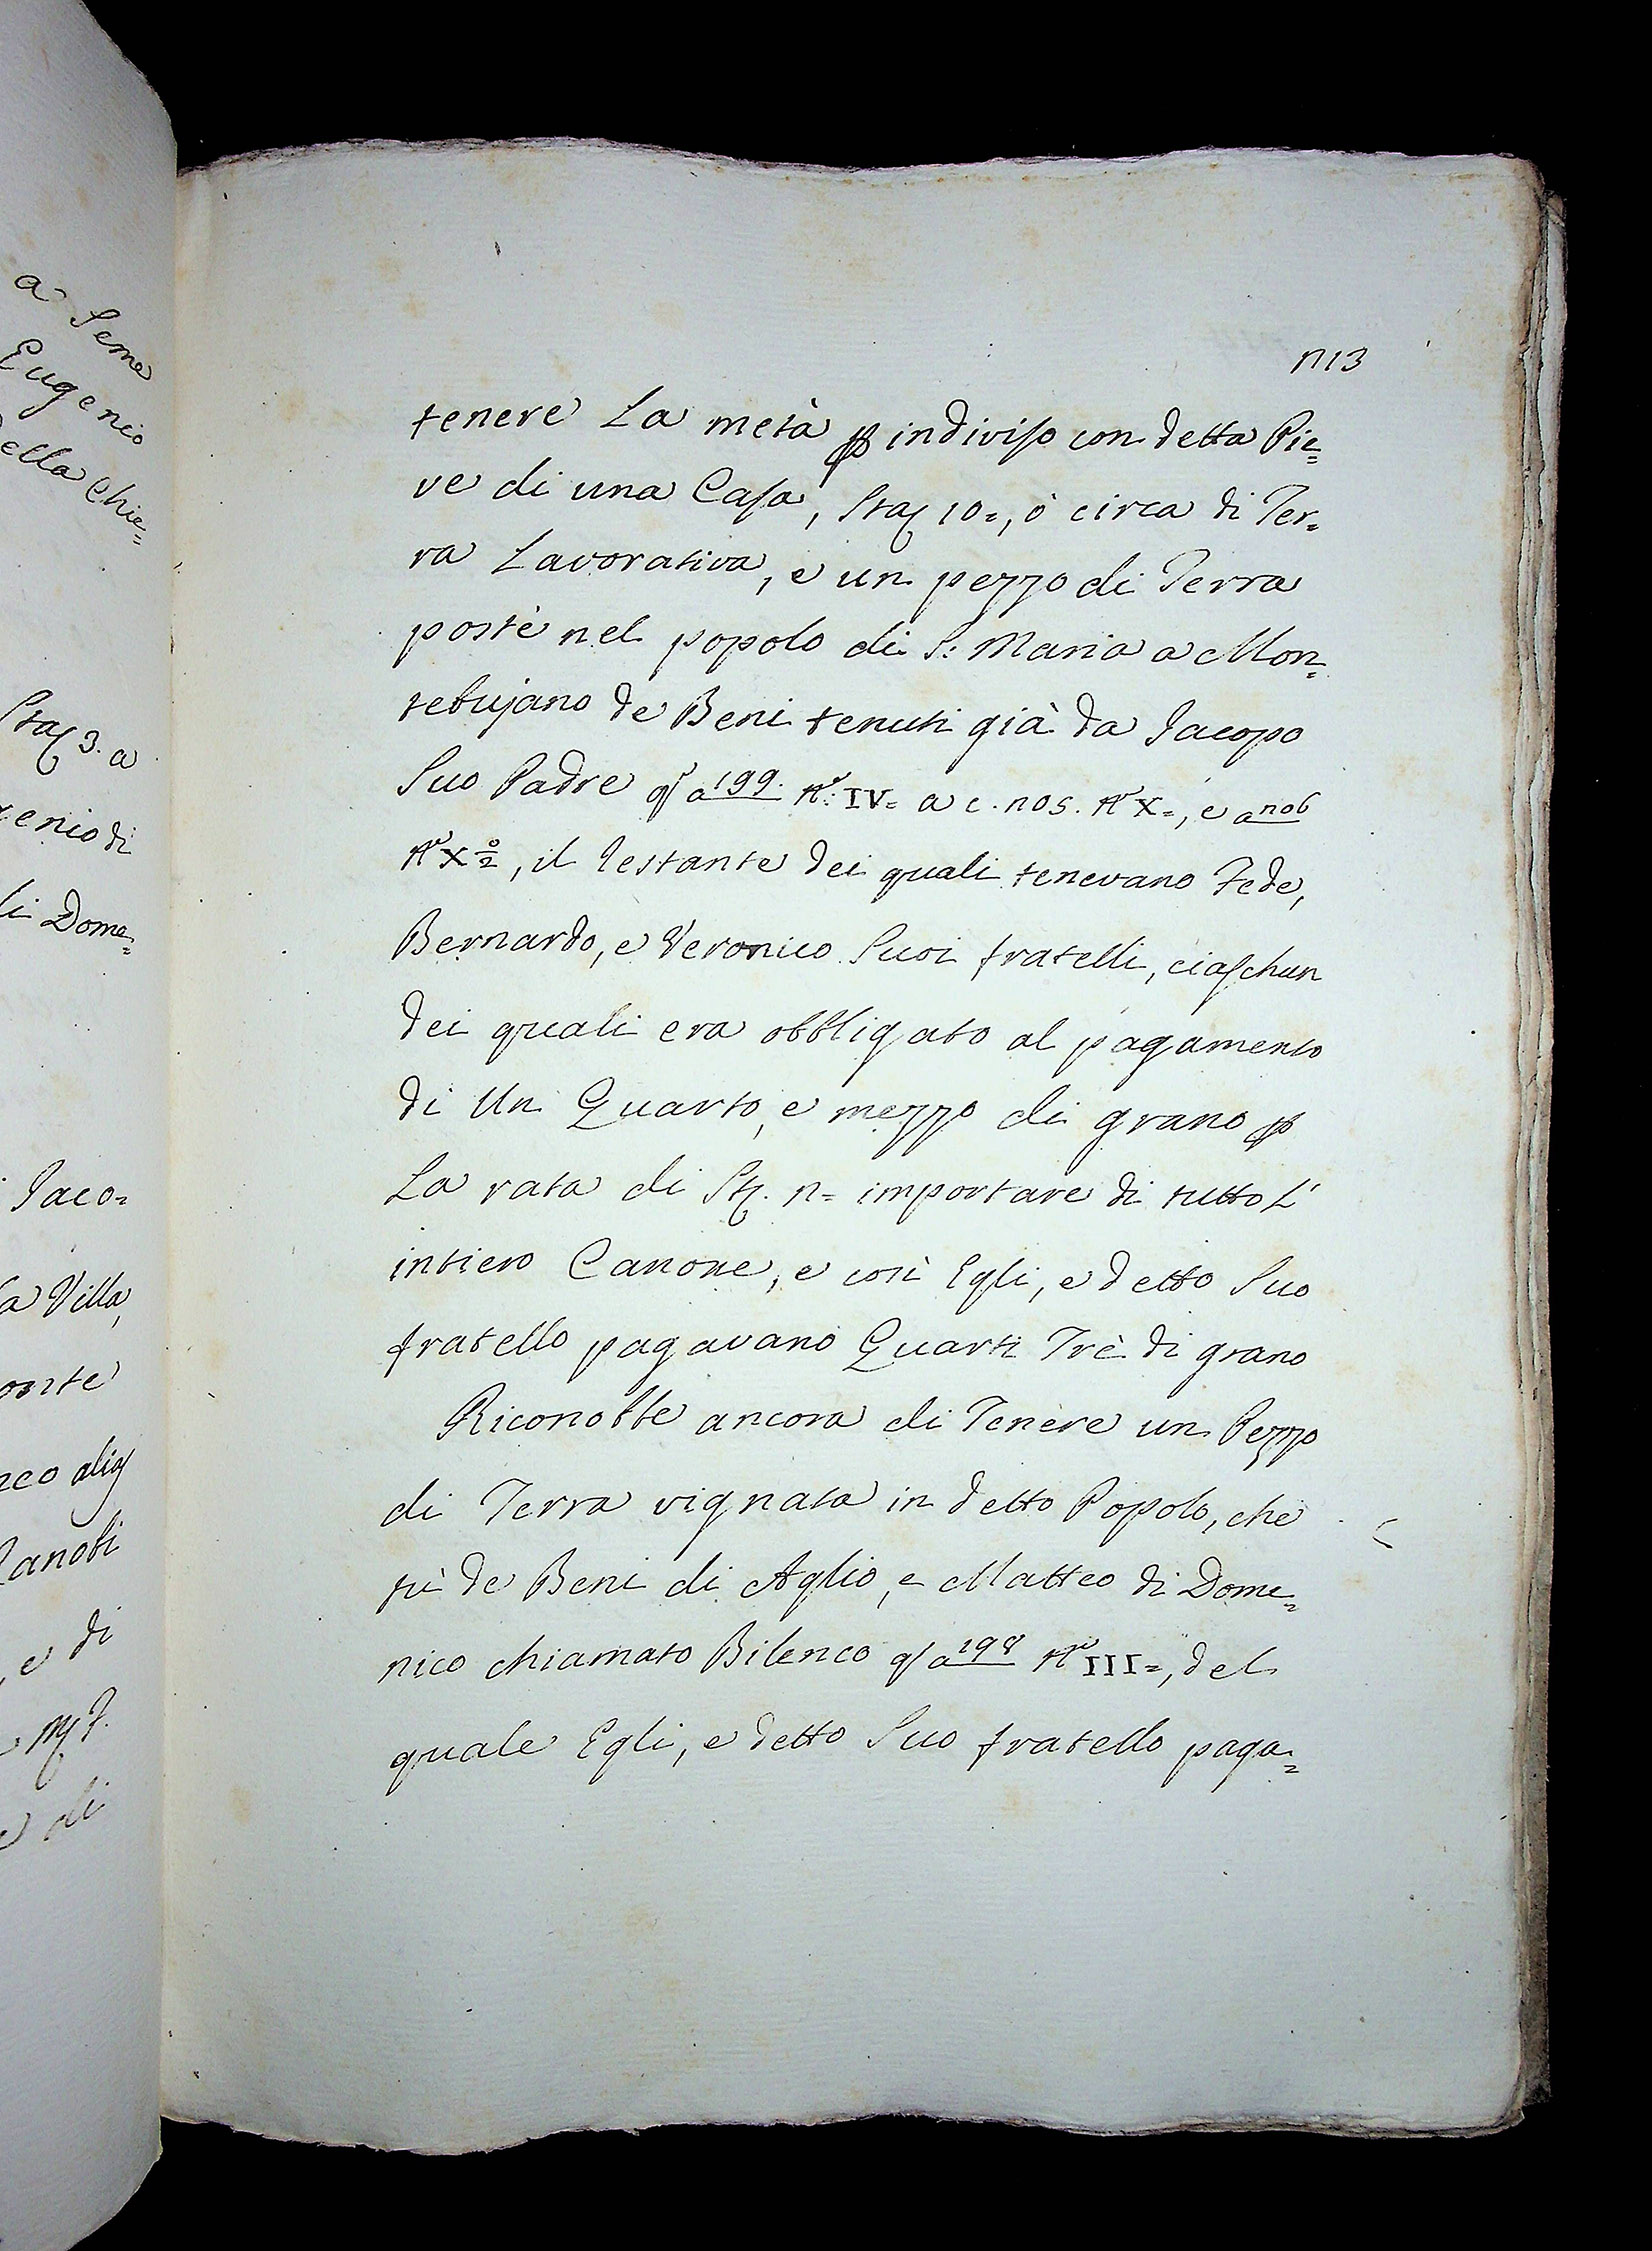 a Seme
Eugenio
ella Chie=
Sta 3. a
enio di
li Dome=
Jaco=
la Villa,
onte
nco
Zanobi
, e di
e di
n13
tenere La metà ꝑ indiviso con detta Pie=
ve di una Casa, Sta 10=, ò circa di Ter=
ra Lavorativa, e un pezzo di Terra
poste nel popolo di S: Maria a Mon=
tebujano de Beni tenuti già da Jacopo
Suo Padre a 199. Nº: IV= a c. n05. Nº X=, e a n06
Nº X, il restante dei quali tenevano Fede,
Bernardo, e Veronico Suoi fratelli, ciaschun
dei quali era obbligato al pagamento
di Un Quarto, e mezzo di grano ꝑ
La rata di St. n= importare di tutto L'
intiero Canone, e così Egli, e detto Suo
fratello pagavano Quarti Trè di grano
Riconobbe ancora di Tenere un Pezzo
di Terra vignata in detto Popolo, che
fù de Beni di Aglio, e Matteo di Dome=
nico chiamato Bilenco a 198 Nº III=, del
quale Egli, e detto Suo fratello paga=